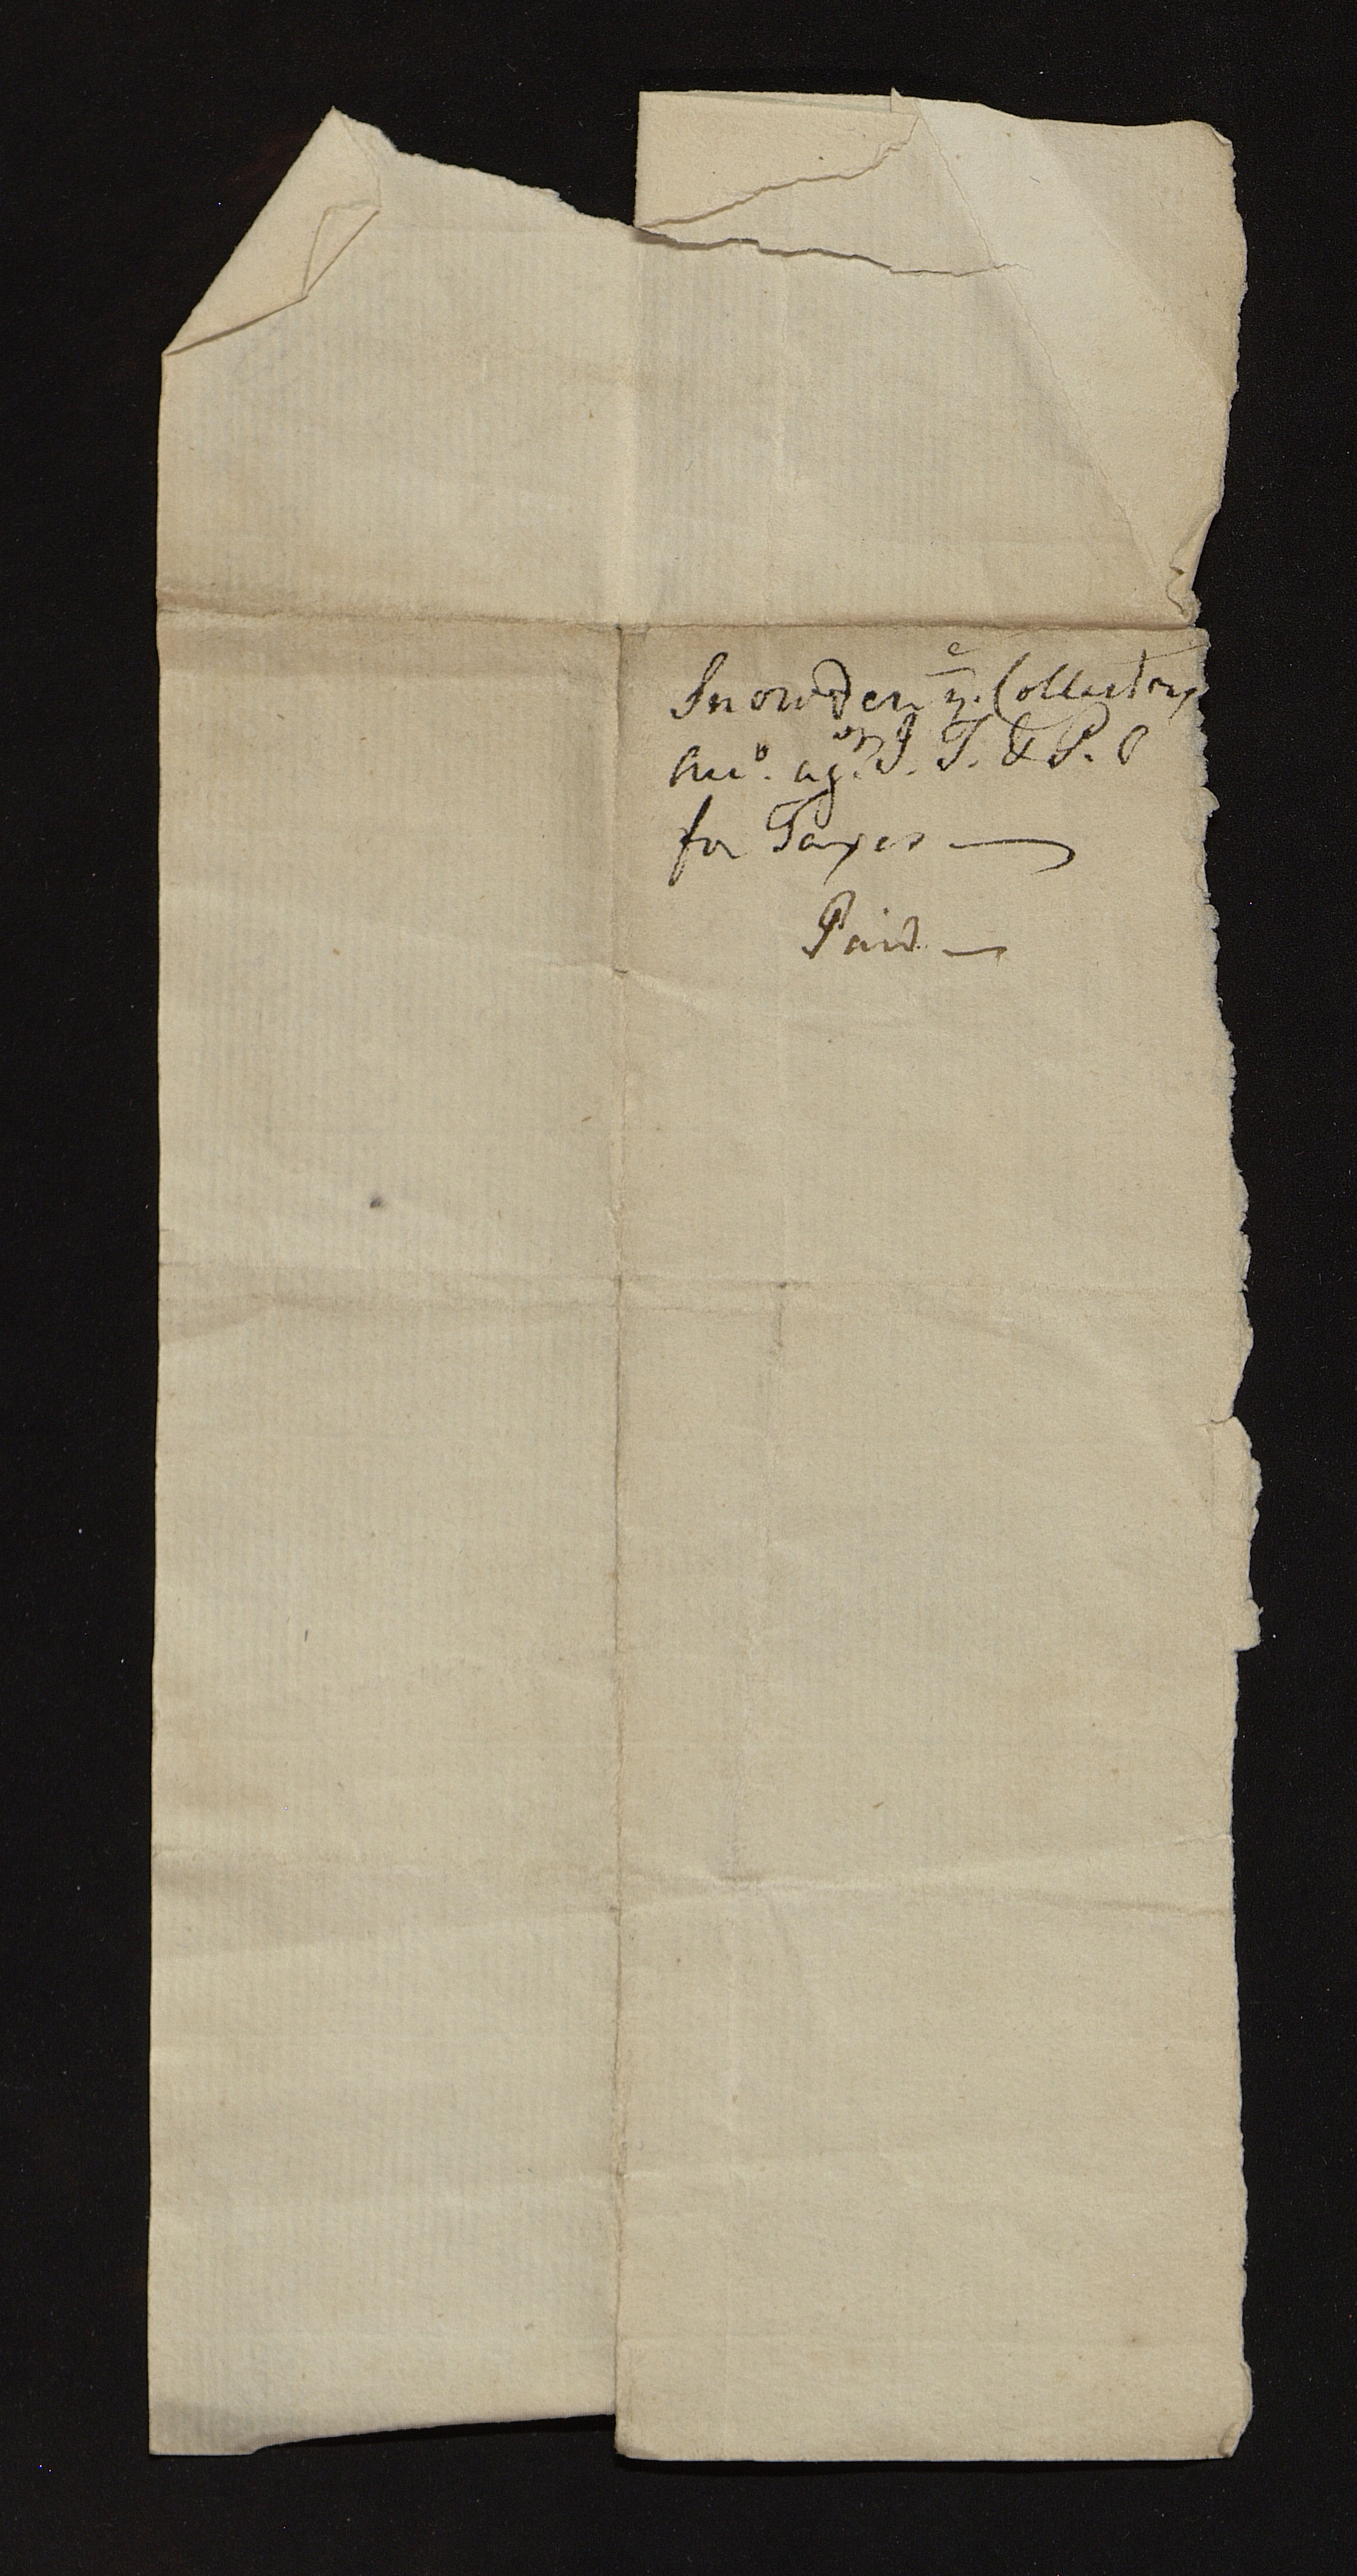 Snowden yᵉ Collectors
Accᵒ. agᵗ. J. T. & P. O
for Taxes —
Paid —